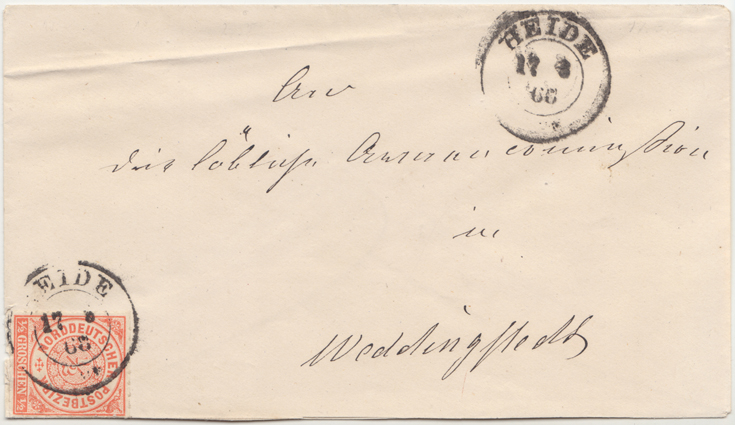 HEIDE
17 8
66
An
die löbliche Armencommission
in
Weddingstedt
HEIDE
17 8
66
NORDDEUTSCHER POSTBEZIRK
½ GROSCHEN ½